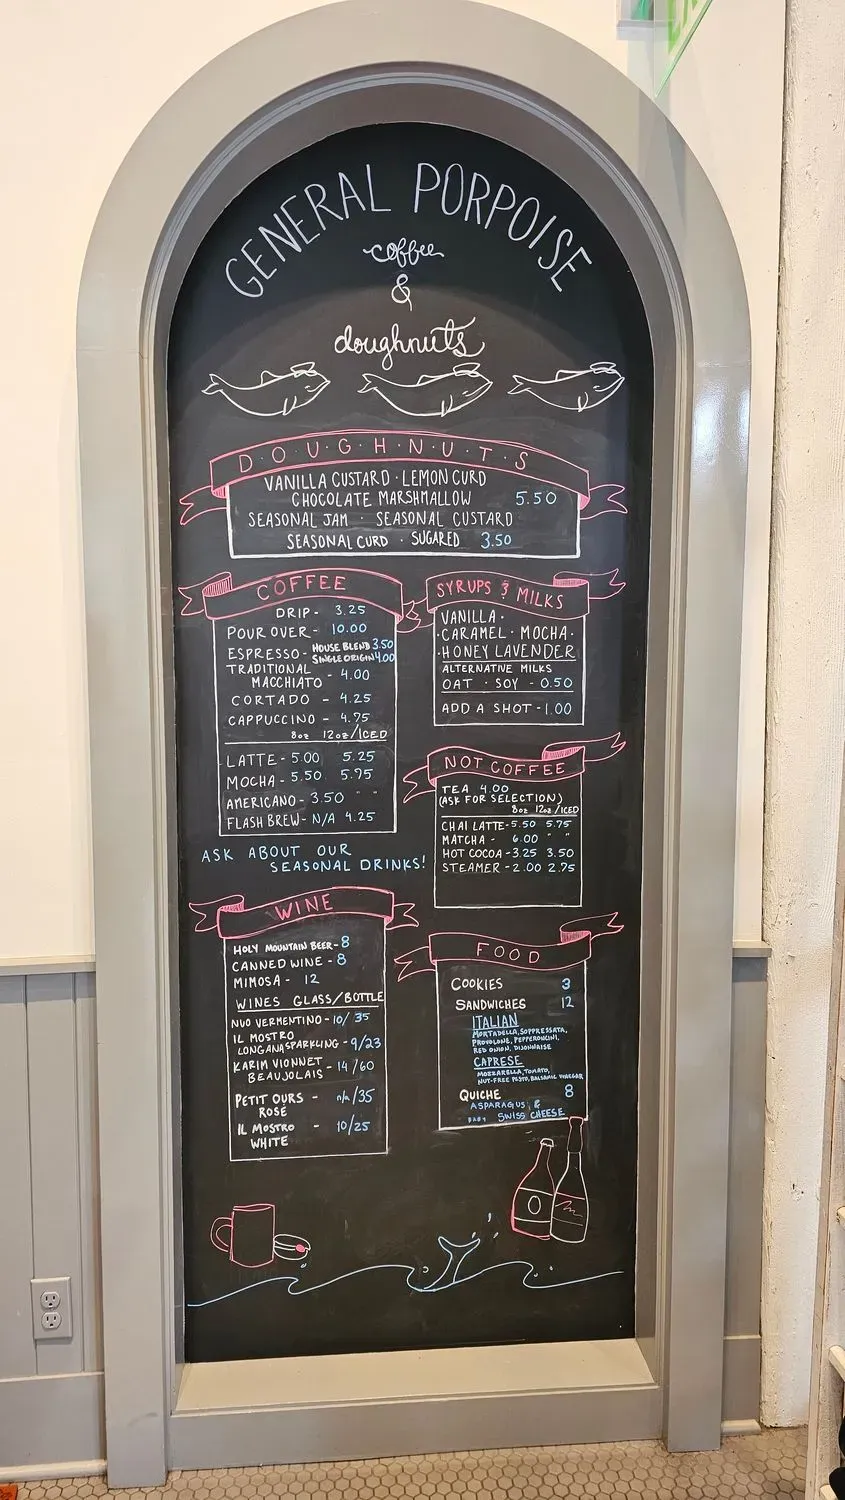 GENERAL PORPOISE
coffee
&
doughnuts
D·O·U·G·H·N·U·T·S
VANILLA CUSTARD · LEMON CURD
CHOCOLATE MARSHMALLOW 5.50
SEASONAL JAM · SEASONAL CUSTARD
SEASONAL CURD · SUGARED 3.50
COFFEE
DRIP - 3.25
POUR OVER - 10.00
ESPRESSO - HOUSE BLEND 3.50
SINGLE ORIGIN 4.00
TRADITIONAL
MACCHIATO - 4.00
CORTADO - 4.25
CAPPUCCINO - 4.75
8oz 12oz/ICED
LATTE - 5.00 5.25
MOCHA - 5.50 5.75
AMERICANO - 3.50 " "
FLASH BREW - N/A 4.25
ASK ABOUT OUR
SEASONAL DRINKS!
SYRUPS & MILKS
VANILLA ·
· CARAMEL · MOCHA ·
· HONEY LAVENDER
ALTERNATIVE MILKS
OAT · SOY - 0.50
ADD A SHOT - 1.00
NOT COFFEE
TEA 4.00
(ASK FOR SELECTION)
8oz 12oz/ICED
CHAI LATTE - 5.50 5.75
MATCHA - 6.00 " "
HOT COCOA - 3.25 3.50
STEAMER - 2.00 2.75
WINE
HOLY MOUNTAIN BEER - 8
CANNED WINE - 8
MIMOSA - 12
WINES GLASS/BOTTLE
NUO VERMENTINO - 10/35
IL MOSTRO
LONGANA SPARKLING - 9/23
KARIM VIONNET - 14/60
BEAUJOLAIS
PETIT OURS - n/a/35
ROSÉ
IL MOSTRO - 10/25
WHITE
FOOD
COOKIES 3
SANDWICHES 12
ITALIAN
MORTADELLA, SOPPRESSATA,
PROVOLONE, PEPPERONCINI,
RED ONION, DIJONNAISE
CAPRESE
MOZZARELLA, TOMATO,
NUT-FREE PESTO, BALSAMIC VINEGAR
QUICHE 8
ASPARAGUS &
BABY SWISS CHEESE